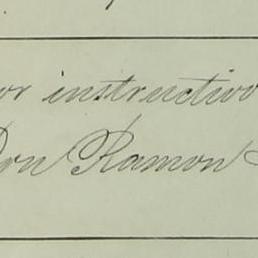 or instructio
Don Ramon